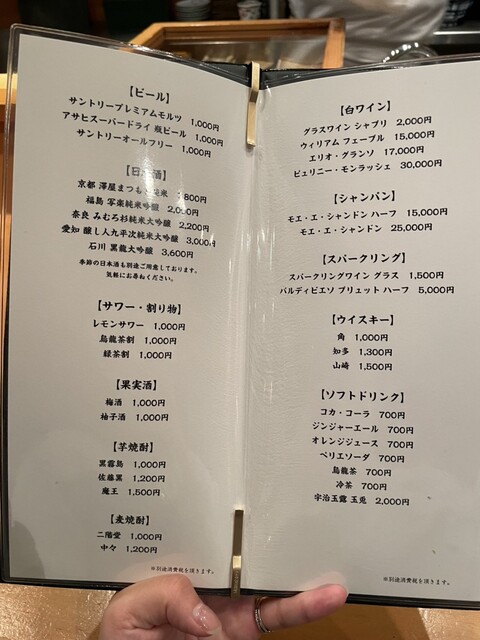 【ビール】
サントリープレミアムモルツ 1,000円
アサヒスーパードライ 瓶ビール 1,000円
サントリーオールフリー 1,000円
【日本酒】
京都 澤屋まつもと純米 800円
福島 写楽純米大吟醸 2,000円
奈良 みむろ杉純米大吟醸 2,200円
愛知 醸し人九平次純米大吟醸 3,000円
石川 黒龍大吟醸 3,600円
季節の日本酒も別途ご用意しております。
気軽にお尋ねください。
【サワー・割り物】
レモンサワー 1,000円
烏龍茶割 1,000円
緑茶割 1,000円
【果実酒】
梅酒 1,000円
柚子酒 1,000円
【芋焼酎】
黒霧島 1,000円
佐藤黒 1,200円
魔王 1,500円
【麦焼酎】
二階堂 1,000円
中々 1,200円
※別途消費税を頂きます。
【白ワイン】
グラスワイン シャブリ 2,000円
ウィリアム フェーブル 15,000円
エリオ・グランソ 17,000円
ピュリニー・モンラッシェ 30,000円
【シャンパン】
モエ・エ・シャンドン ハーフ 15,000円
モエ・エ・シャンドン 25,000円
【スパークリング】
スパークリングワイン グラス 1,500円
バルディビエソ ブリュット ハーフ 5,000円
【ウイスキー】
角 1,000円
知多 1,300円
山崎 1,500円
【ソフトドリンク】
コカ・コーラ 700円
ジンジャーエール 700円
オレンジジュース 700円
ペリエソーダ 700円
烏龍茶 700円
冷茶 700円
宇治玉露 玉兎 2,000円
※別途消費税を頂きます。